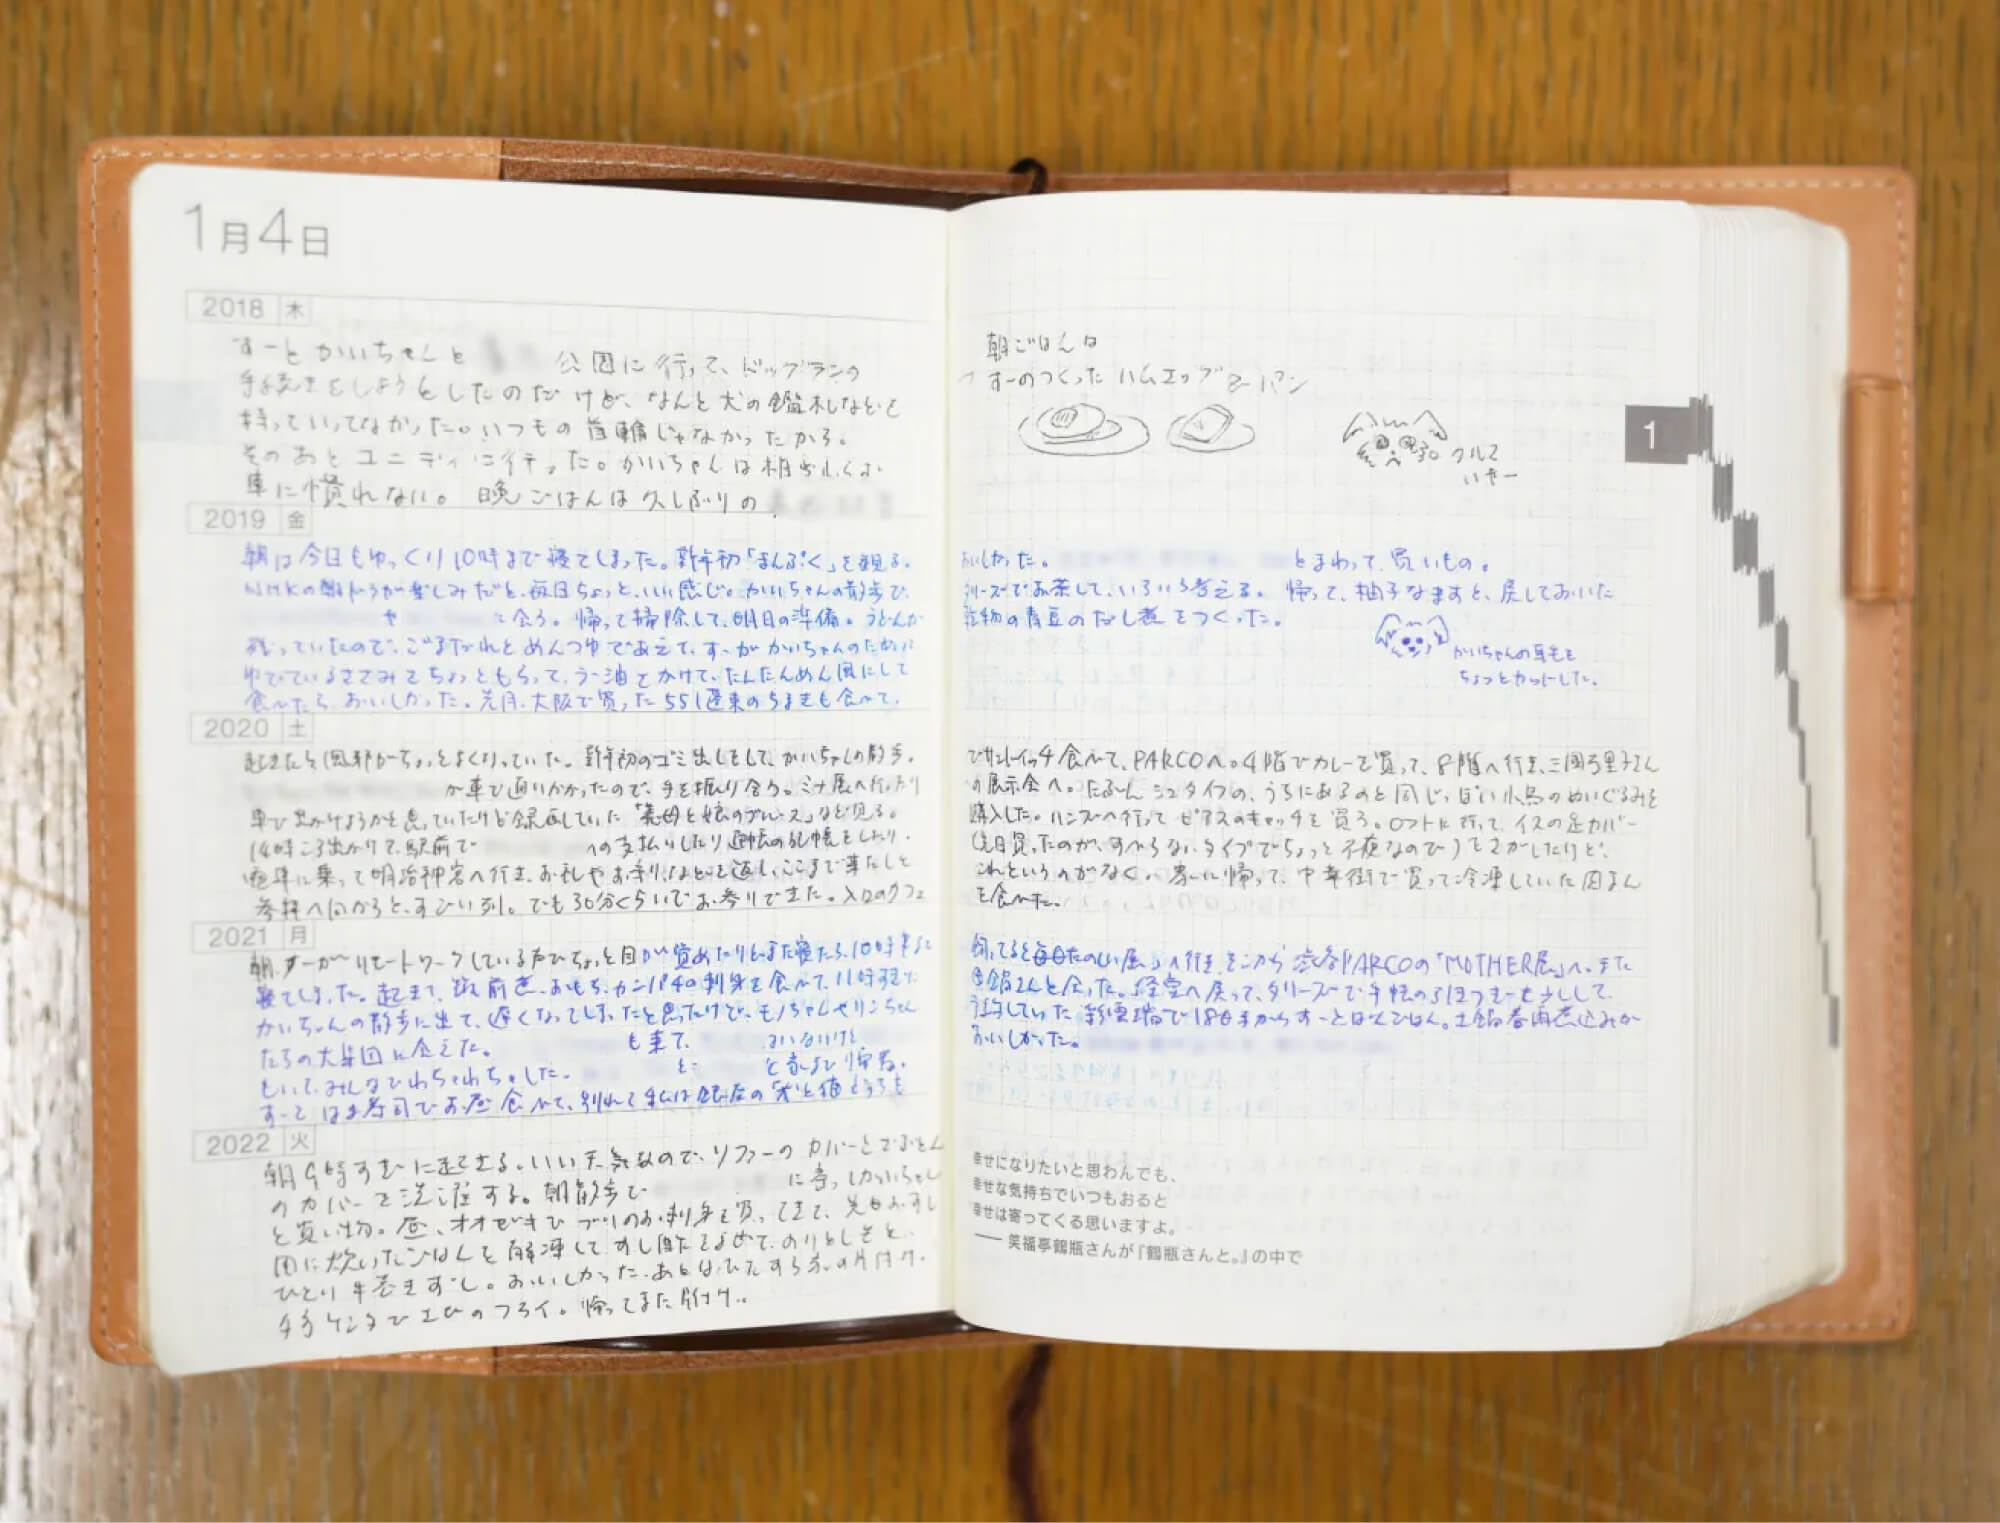 1月4日
2018 木
すーとかいちゃんと 公園に行って、ドッグランの
手続きをしようとしたのだけど、なんと犬の鑑札などを
持っていってなかった。いつもの首輪じゃなかったから。
そのあとユニディに行った。かいちゃんは相変わらず
車に慣れない。晩ごはんは久しぶりの
2019 金
朝は今日もゆっくり10時まで寝てしまった。新年初「まんぷく」を観る。
NHKの朝ドラが楽しみだと、毎日ちょっといい感じ。かいちゃんの散歩で、
や に会う。帰って掃除して、明日の準備。うどんが
残っていたので、ごまだれとめんつゆであえて、すーがかいちゃんのために
ゆでているささみをちょっともらって、ラー油をかけて、たんたんめん風にして
食べたら、おいしかった。先月、大阪で買った551蓬莱のちまきも食べて、
2020 土
起きたら、風邪がちょっとよくなっていた。新年初のゴミ出しをして、かいちゃんの散歩。
が車で通りかかったので、手を振り合う。ミナ展へ行ったり
車で出かけようかと思っていたけど録画していた「義母と娘のブルース」など見る。
14時ころ出かけて、駅前で への支払いしたり通帳の記帳をしたり。
電車に乗って明治神宮へ行き、お札やお守りなどを返し、ここまで来たしと
参拝へ向かうと、すごい列。でも30分くらいでお参りできた。入口のカフェ
2021 月
朝、すーがリモートワークしている声でちょっと目が覚めたけどまた寝たら、10時半まで
寝てしまった。起きて、筑前煮、おもち、カンパチの刺身を食べて、11時すぎに
かいちゃんの散歩に出て、遅くなってしまったと思ったけど、モノちゃんやリンちゃん
たちの大集団に会えた。 も来て、 はいないけど
もいて、みんなでわちゃわちゃした。 と と家まで帰る。
すーとはま寿司でお昼食べて、別れて私は銀座の「犬と猫どっちも
2022 火
朝9時すぎに起きる。いい天気なので、ソファーのカバーとざぶとん
のカバーを洗濯する。朝散歩で に寄っ
と買い物。昼、オオゼキでブリのお刺身を買ってきて、先日おすし
用に炊いたごはんを解凍してすし酢でまぜて、のりとしそと、
ひとり手巻きずし。おいしかった。あとはひたすら家の片付け。
でエビのフライ。帰ってまた片付け。
朝ごはんは
すーのつくったハムエッグとパン
クルマ
いやー
1
おいしかった。 とまわって、買いもの。
タリーズでお茶して、いろいろ考える。帰って、柚子なますと、戻しておいた
乾物の青豆のだし煮をつくった。
かいちゃんの耳毛を
ちょっとカットした。
でサンドイッチ食べて、PARCOへ。4階でカレーを買って、8階へ行き、三國万里子さん
の展示会へ。たぶんシュタイフの、うちにあるのと同じっぽい小鳥のぬいぐるみを
購入した。ハンズへ行ってピアスのキャッチを買う。ロフトに行って、イスの足カバー
(先日買ったのが、すべらないタイプでちょっと不便なので)をさがしたけど、
これというのがなく。家に帰って、中華街で買って冷凍していた肉まん
を食べた。
飼ってると毎日たのしい展」へ行き、そこから渋谷PARCOの「MOTHER展」へ。また
さんと会った。経堂へ戻って、タリーズで手帳の引きつぎを少しして、
予約していた 新雲瑞で18時からすーとばんごはん。土鍋春雨煮込みが
おいしかった。
幸せになりたいと思わんでも、
幸せな気持ちでいつもおると
幸せは寄ってくる思いますよ。
── 笑福亭鶴瓶さんが『鶴瓶さんと。』の中で